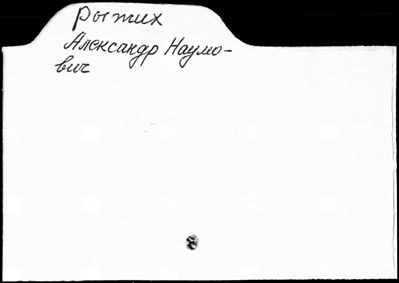 Ротих
Александр Наумо-
вич